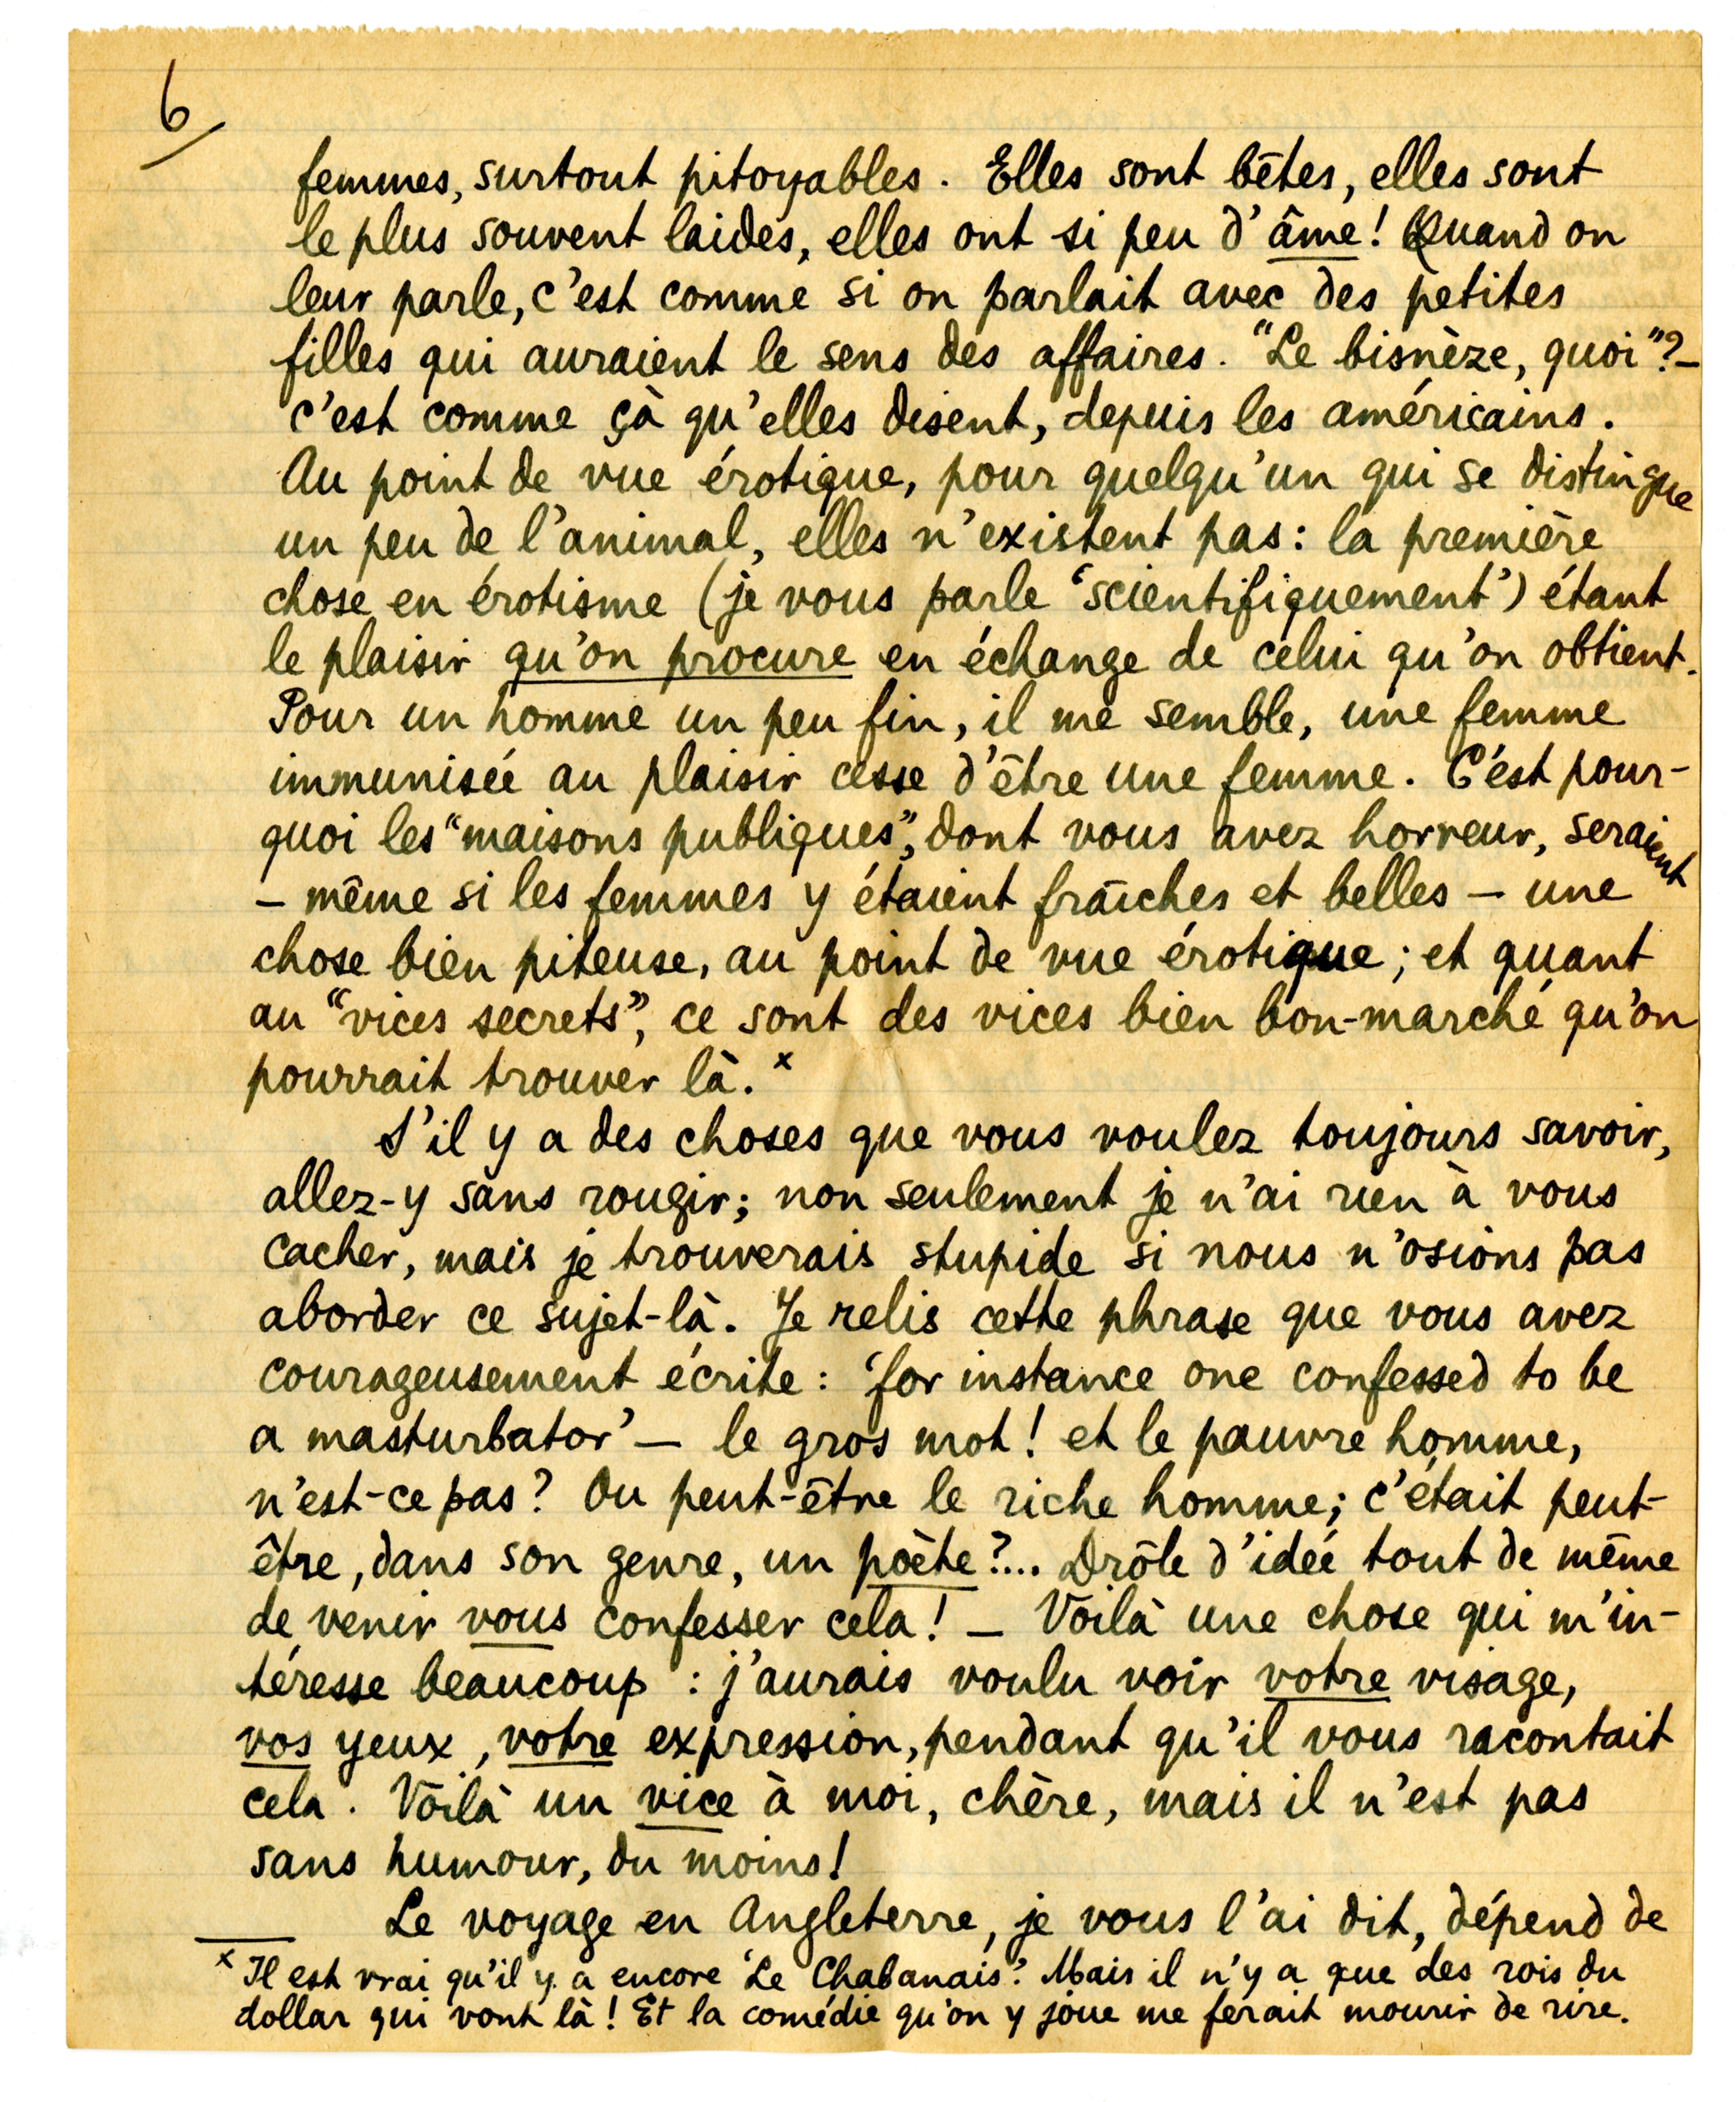 6
femmes, surtout pitoyables. Elles sont bêtes, elles sont
le plus souvent laides, elles ont si peu d'âme! Quand on
leur parle, c'est comme si on parlait avec des petites
filles qui auraient le sens des affaires. "Le bisnèze, quoi"? –
c'est comme çà qu'elles disent, depuis les américains.
Au point de vue érotique, pour quelqu'un qui se distingue
un peu de l'animal, elles n'existent pas: la première
chose en érotisme (je vous parle 'scientifiquement') étant
le plaisir qu'on procure en échange de celui qu'on obtient.
Pour un homme un peu fin, il me semble, une femme
immunisée au plaisir cesse d'être une femme. C'est pour-
quoi les "maisons publiques", dont vous avez horreur, seraient
– même si les femmes y étaient fraîches et belles – une
chose bien piteuse, au point de vue érotique; et quant
au "vices secrets", ce sont des vices bien bon-marché qu'on
pourrait trouver là. x
S'il y a des choses que vous voulez toujours savoir,
allez-y sans rougir; non seulement je n'ai rien à vous
cacher, mais je trouverais stupide si nous n'osions pas
aborder ce sujet-là. Je relis cette phrase que vous avez
courageusement écrite: 'for instance one confessed to be
a masturbator' – le gros mot! et le pauvre homme,
n'est-ce pas? Ou peut-être le riche homme; c'était peut-
être, dans son genre, un poète?... Drôle d'idée tout de même
de venir vous confesser cela! – Voilà une chose qui m'in-
téresse beaucoup: j'aurais voulu voir votre visage,
vos yeux, votre expression, pendant qu'il vous racontait
cela. Voilà un vice à moi, chère, mais il n'est pas
sans humour, du moins!
Le voyage en Angleterre, je vous l'ai dit, dépend de
x Il est vrai qu'il y a encore 'Le Chabanais'. Mais il n'y a que des rois du
dollar qui vont là! Et la comédie qu'on y joue me ferait mourir de rire.